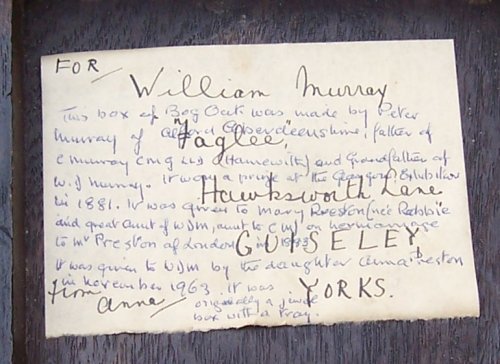 FOR
William Murray
This box of Bog Oak was made by Peter
Murray of Alford Aberdeenshire, father of
"Faglee",
C Murray CMG LLD (Hamewith) and Grandfather of
W.D Murray. It won a prize at the Glasgow Exhibition
Hawksworth Lane
in 1881. It was given to Mary Preston (née Robbie
and great Aunt of WDM, aunt to CM) on her marriage
GUISELEY,
to Mr Preston of London in 1883
It was given to WDM by the daughter Anna Preston
in November 1963 it was
YORKS.
from Anna
originally a jewel
box with a tray.